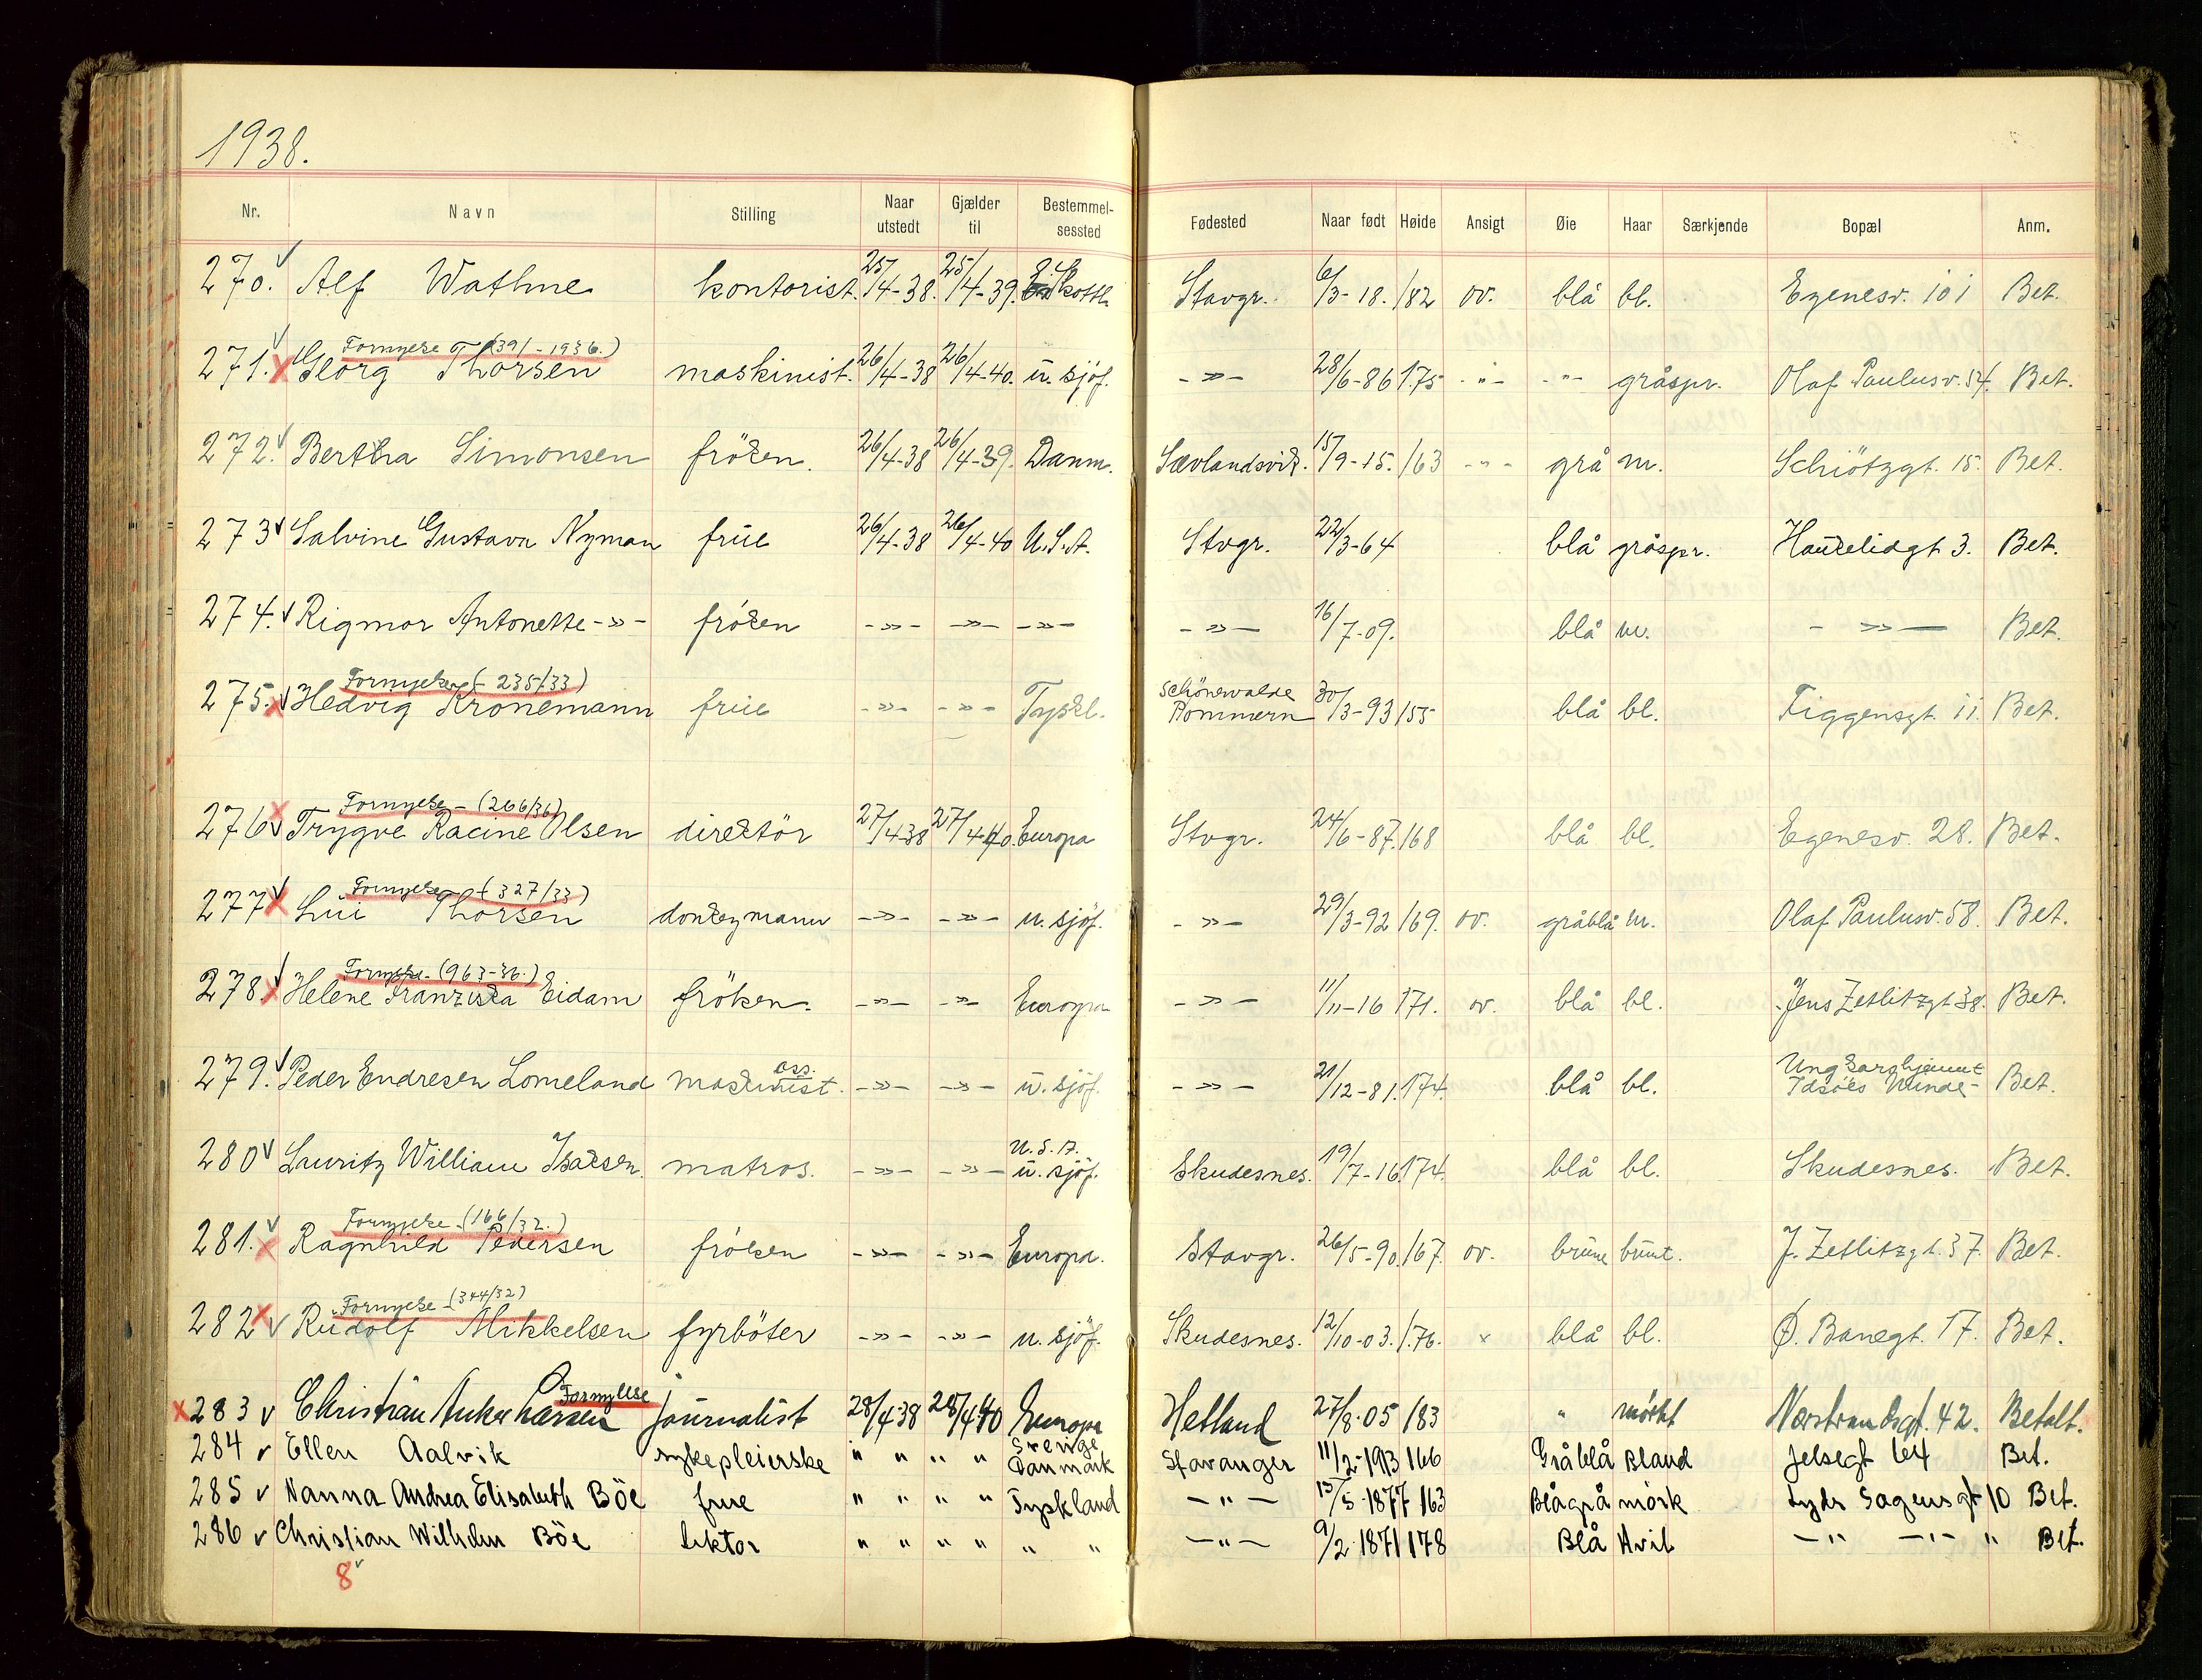 1938.
Nr. Navn Stilling Naar utstedt Gjælder til Bestemmel-sessted Fødested Naar født Høide Ansigt Øie Haar Særkjende Bopæl Anm.
270. Alf Wathne kontorist. 25/4-38. 25/4-39. Skottl. Stavgr. 6/3-18. 182 ov. blå bl. Egenesv. 101 Bet.
Fornyelse (391-1936.)
271. Georg Thorsen maskinist. 26/4-38 26/4-40. u. sjöf. -»- 28/6-86 175 -"- -"- gråspr. Olaf Paulusv. 54. Bet.
272. Bertha Simonsen fröken. 26/4-38 26/4-39. Danm. Sævlandsvik. 15/9-15. 163 -"- grå m. Schiötzgt. 15. Bet.
273 Salvine Gustava Nyman frue 26/4-38 26/4-40 U.S.A. Stvgr. 22/3-64 blå gråspr. Haukelidgt 3. Bet.
274. Rigmor Antonette -»- fröken -»- -»- -»- -»- 16/7-09. blå m. -»- Bet.
Fornyelse (235/33) Schönewalde
275. Hedvig Kronemann frue -»- -»- Tyskl. Pommern 30/3-93 155 blå bl. Figgensgt. 11. Bet.
Fornyelse - (266/36)
276 Trygve Racine Olsen direktör 27/4-38 27/4-40. Europa Stvgr. 24/6-87. 168 blå bl. Egenesv. 28. Bet.
Fornyelse (327/33)
277 Lui Thorsen donkeymann -»- -»- u. sjöf. -»- 29/3-92 169. ov. gråblå m. Olaf Paulusv. 58. Bet.
Fornyelse - (963-36.)
278. Helene Franziska Eidam fröken. -»- -»- Europa -»- 11/11-16 171. ov. blå bl. Jens Zetlitzgt 38. Bet.
ass. Ungkarshjemmet
279. Peder Endresen Lomeland maskinist. -»- -»- u. sjöf. -»- 21/12-81. 174. blå bl. Idsöes Minde- Bet.
U.S.A.
280 Lauritz William Isaksen matros. -»- -»- u. sjöf. Skudesnes. 19/7-16 174. blå bl. Skudesnes. Bet.
Fornyelse - (166/32.)
281. Ragnhild Pedersen fröken -»- -»- Europa. Stavgr. 26/5-90. 167. ov. brune brunt. J. Zetlitzgt. 37. Bet.
Fornyelse - (344/32)
282 Rudolf Mikkelsen fyrböter -»- -»- u. sjöf. Skudesnes. 12/10-03. 1.76. × blå bl. Ø. Banegt. 17. Bet.
Fornyelse
283 Christian Anker Larsen journalist 28/4-38 28/4-40 Europa Hetland 27/8-05 183 " mörkt Nærstrandsgt. 42. Betalt.
Sverige
284 Ellen Aalvik sykepleierske " " " " Danmark Stavanger 11/2-1913 166 Gråblå Bland Jelsegt 64 Bet.
285 Nanna Andrea Elisabeth Böe frue " " " " Tyskland -"- 15/5-1877 163 Blågrå mörk Lyder Sagensgt 10 Bet.
286 Christian Wilhelm Böe lektor " " " " " " -"- 9/2-1871 178 Blå Hvit -" -"- " Bet.
8